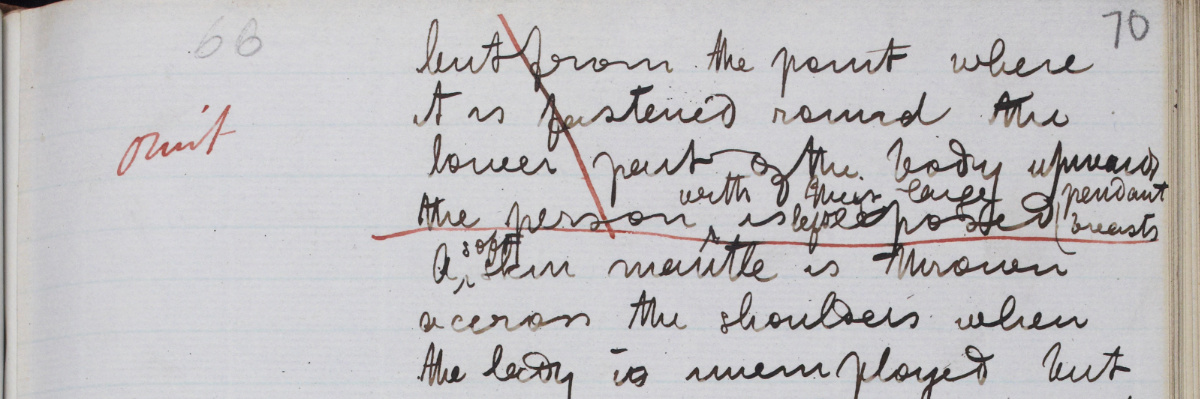 68
70
omit
but from the point where
it is fastened round the
lower part of the body upwards
with their large pendant
the person is left exposed breasts
soft
A skin mantle is thrown
accross the shoulders when
the lady is unemployed but